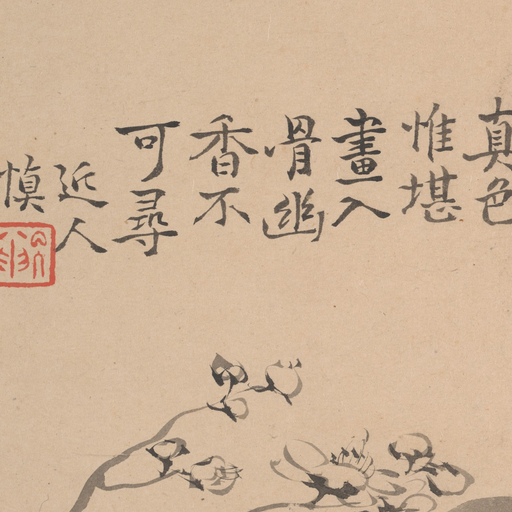 真色
惟堪
畫入
骨幽
香不
可尋
近人
慎